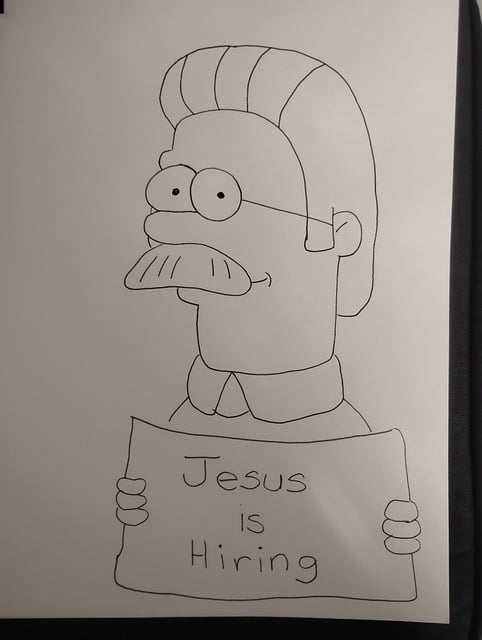 Jesus
is
Hiring